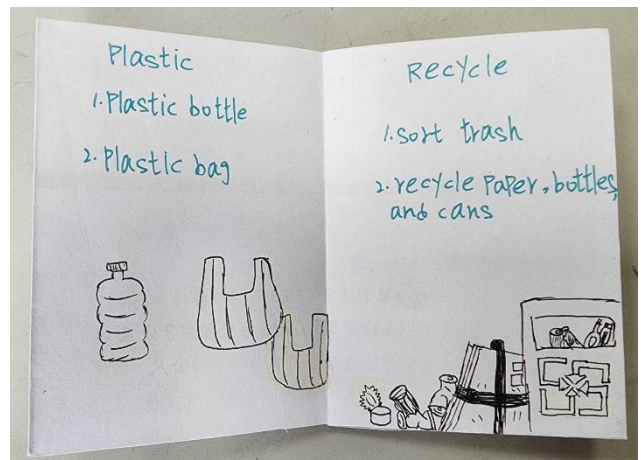 Plastic
1. Plastic bottle
2. Plastic bag
Recycle
1. sort trash
2. recycle paper, bottles,
and cans